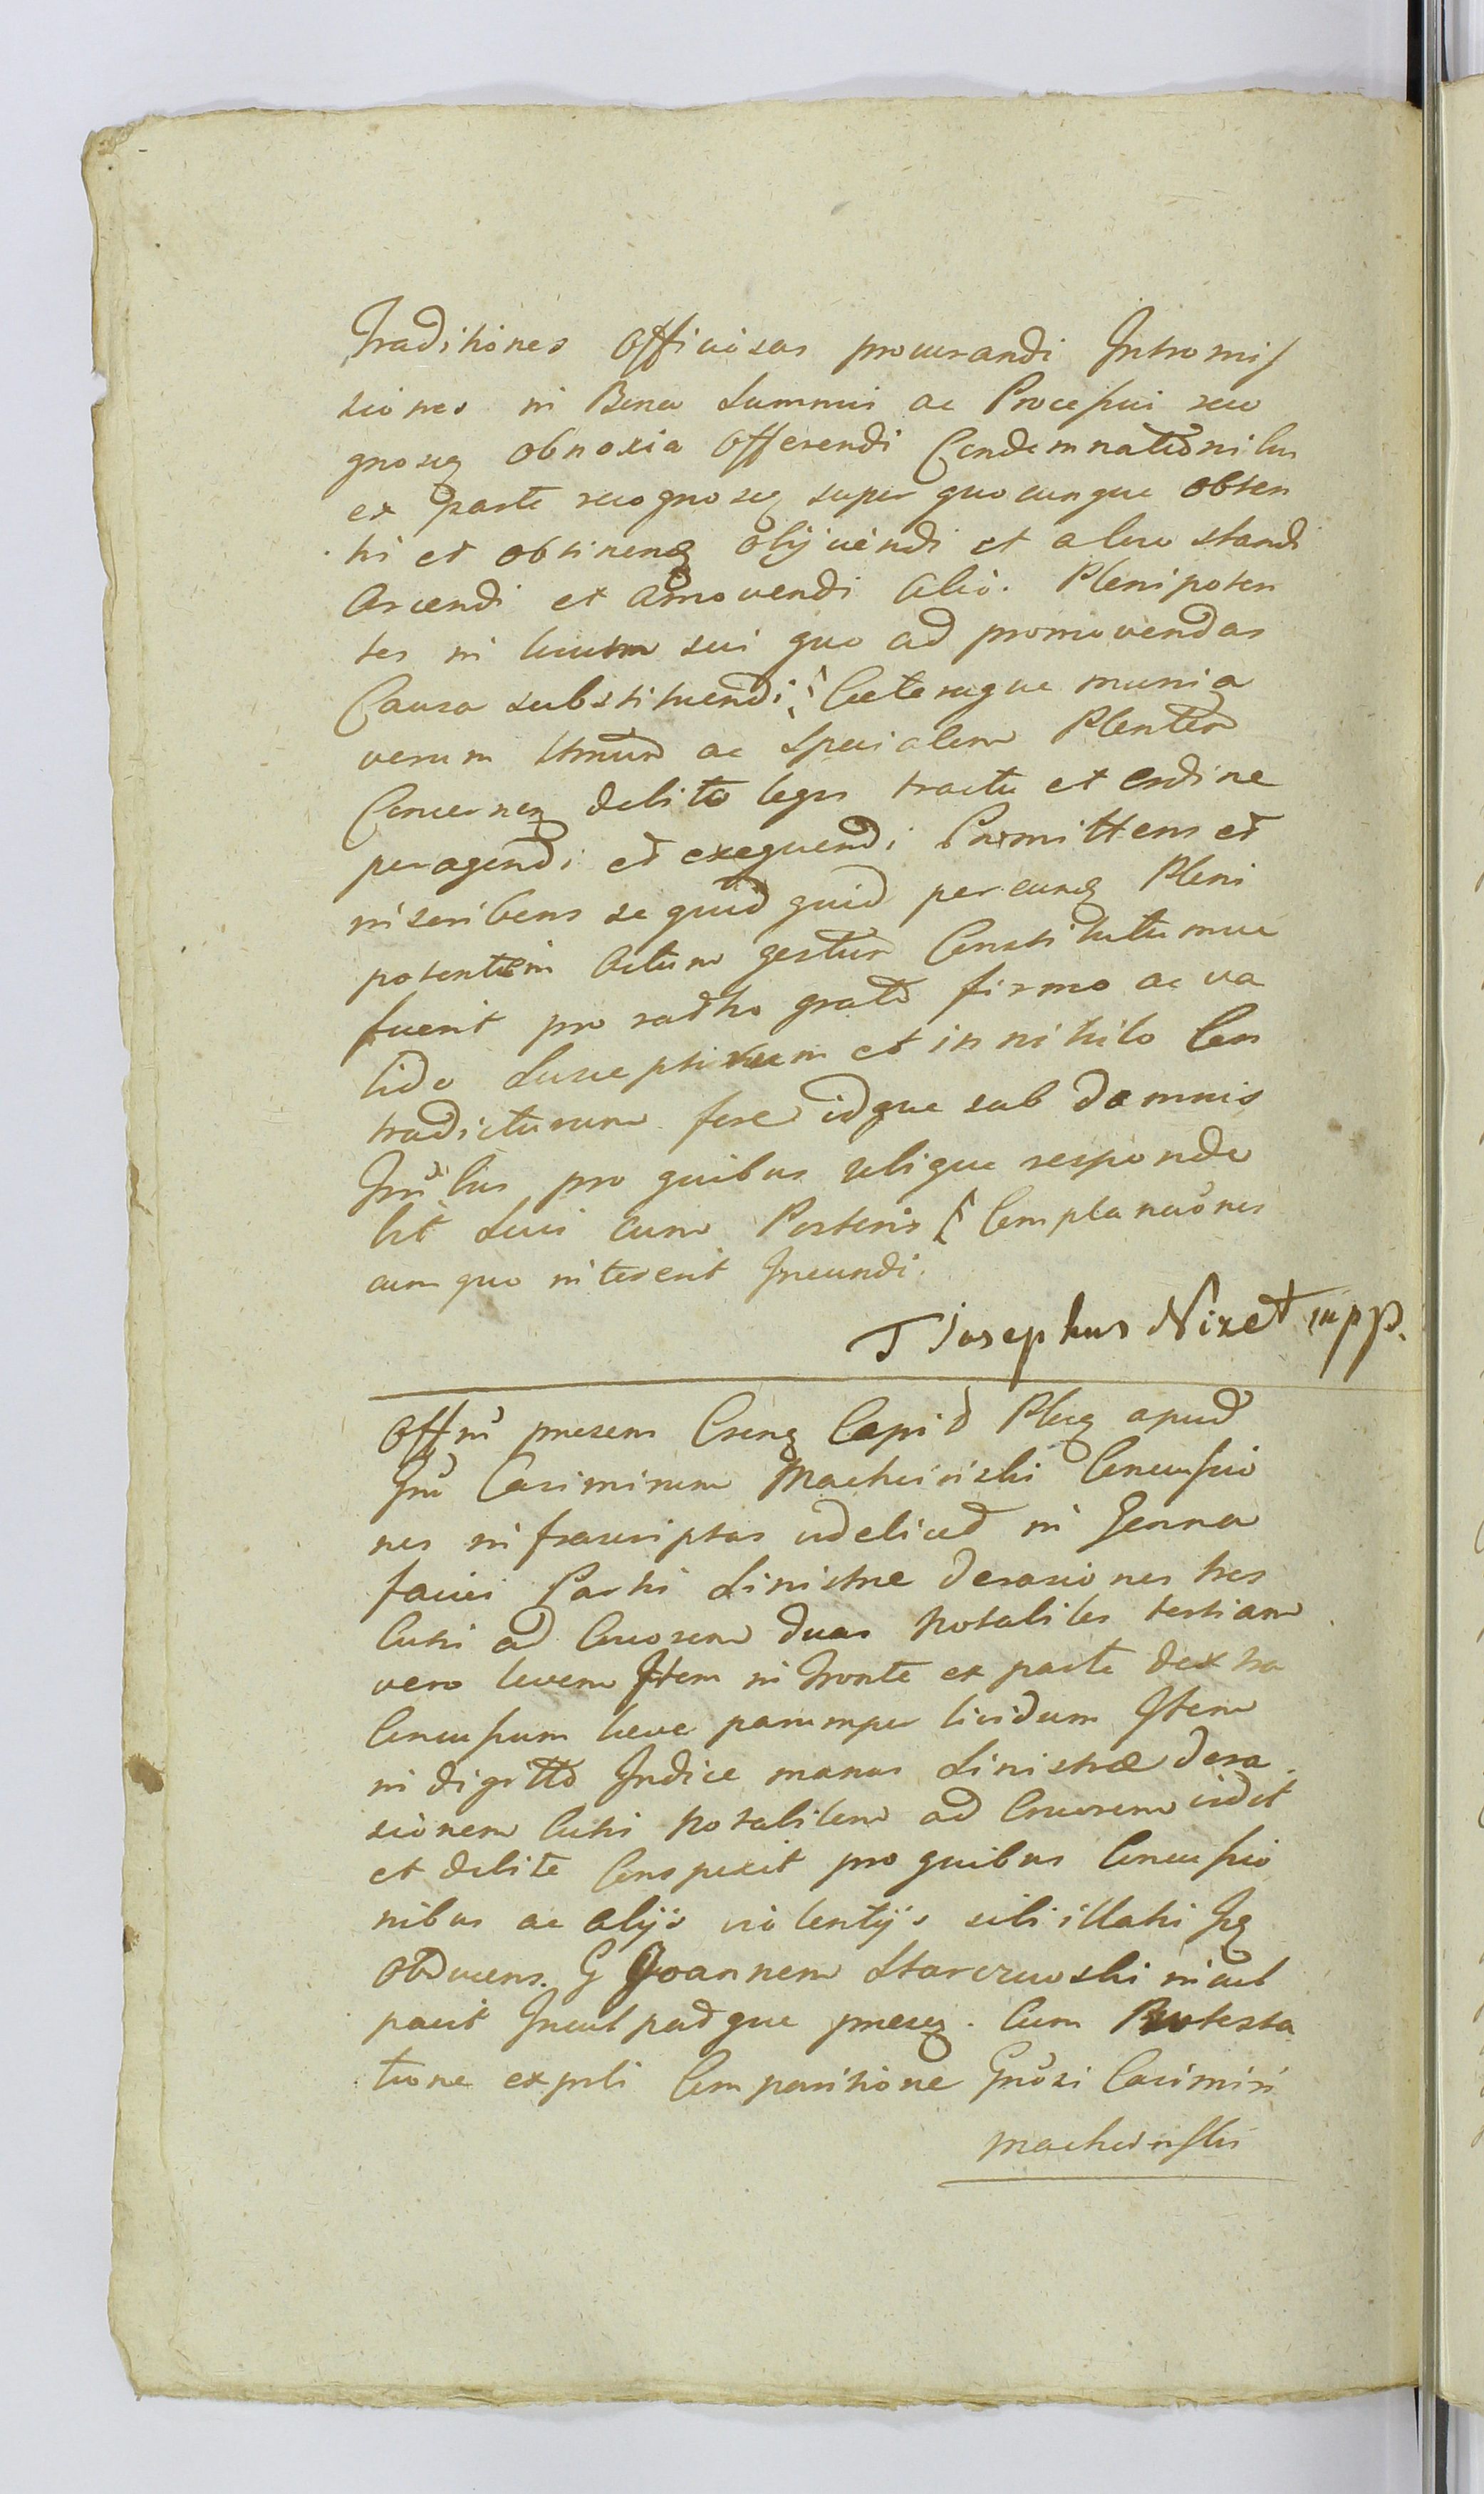 Traditiones Officiosas procurandi Intromis
siones in Bona Summis ac Processui reco
gnoseq obnoxia Offerendi Condemnationibus
ex parte recognoseq super quocunque obten
ti et obtinenq obijciendi et a loco standi
Arcendi et amovendi Alio. Plenipoten
tes in locum sui quo ad promovendas
Causas substituendi Caeteraque munia
verum Umũm ac Specialem Plentem
Concernen debito legis tractu et ordine
peragendi et exequendi Promittens et
inscribens se quid quid per eunq Pleni
potentem Actum gestum Constitutumve
fuerit pro ratho grato firmo ac va
lido Suscepturum et in nihilo Con
tradicturum fore idque sub damnis
Irrũbus pro quibus ubique responde
bit Sui cum Posteris Complanaões
cum quo niterent Ineundi.
T Josephus Nizet mpp.
Offm̃ praesens Crenq Capit Pleq apud
Gm̃ Casimirum Machcinski Concussio
nes infrascriptas videlicet in Genna
faciei Parti Sinistrae derasiones tres
Cutis ad Cruorem duas Notabiles tertiam
vero levem Item in Fronte ex parte dextra
Concussum leve parumper lividum Item
in digitto Indice manus Sinistrae dera
sionem Cutis Notabilem ad Cruorem vidit
et debite Conspexit pro quibus Concussio
nibus ac alijs violentijs sibi illatis Iq
Obducens. G Joannem Starczewski incul
pavit Inculpatque praeseq. Cum Protesta
tione ex prti Comparitione Gnõsi Casimiri
Machcinski